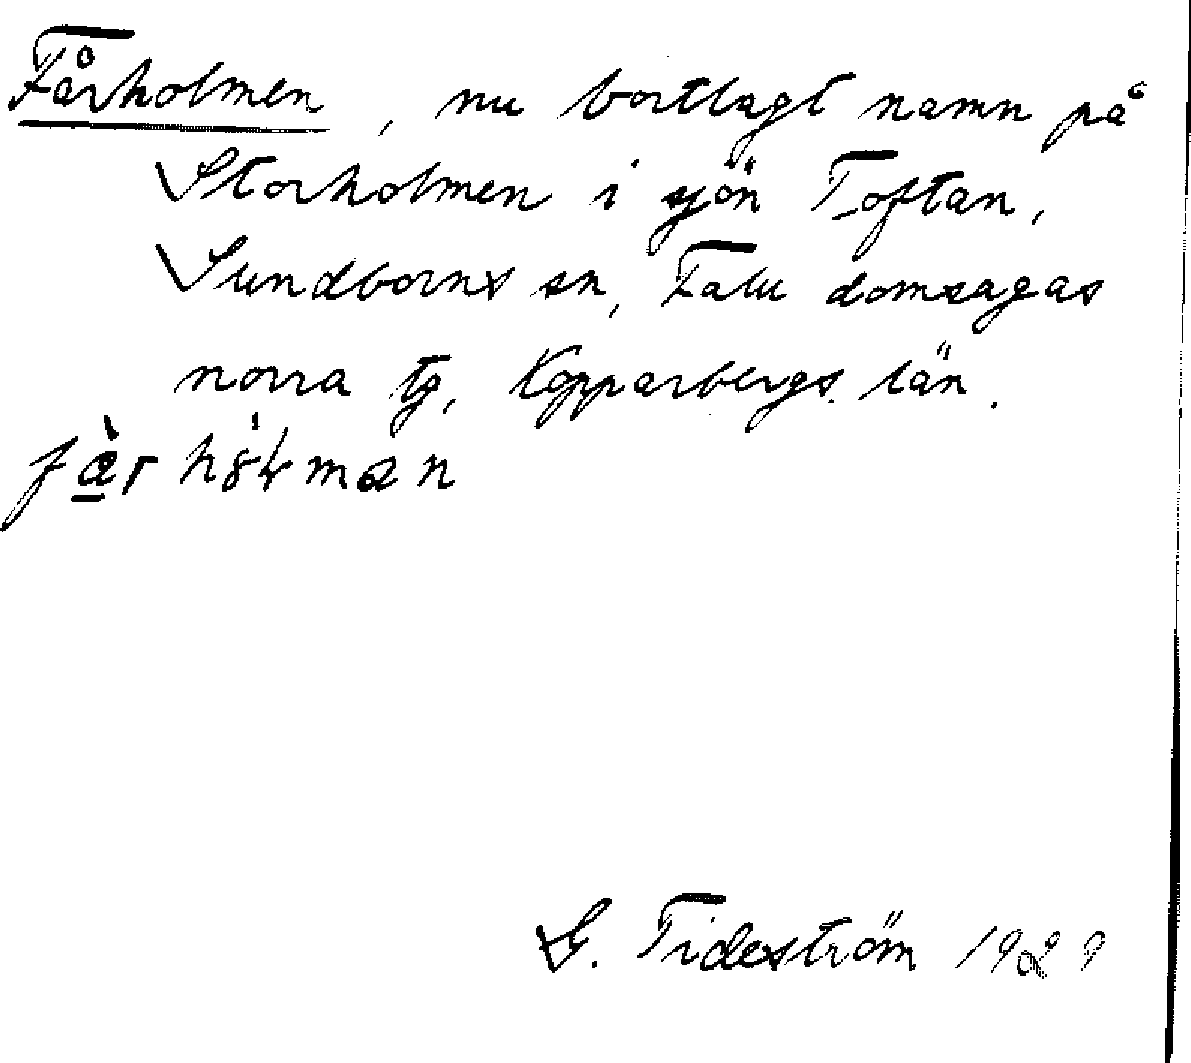 Fårholmen, nu bortlagt namn på
Storholmen i sjön Toftan,
Sundborns sn, Falu domsagas
norra tg, Kopparbergs län.
G. Tideström 1929